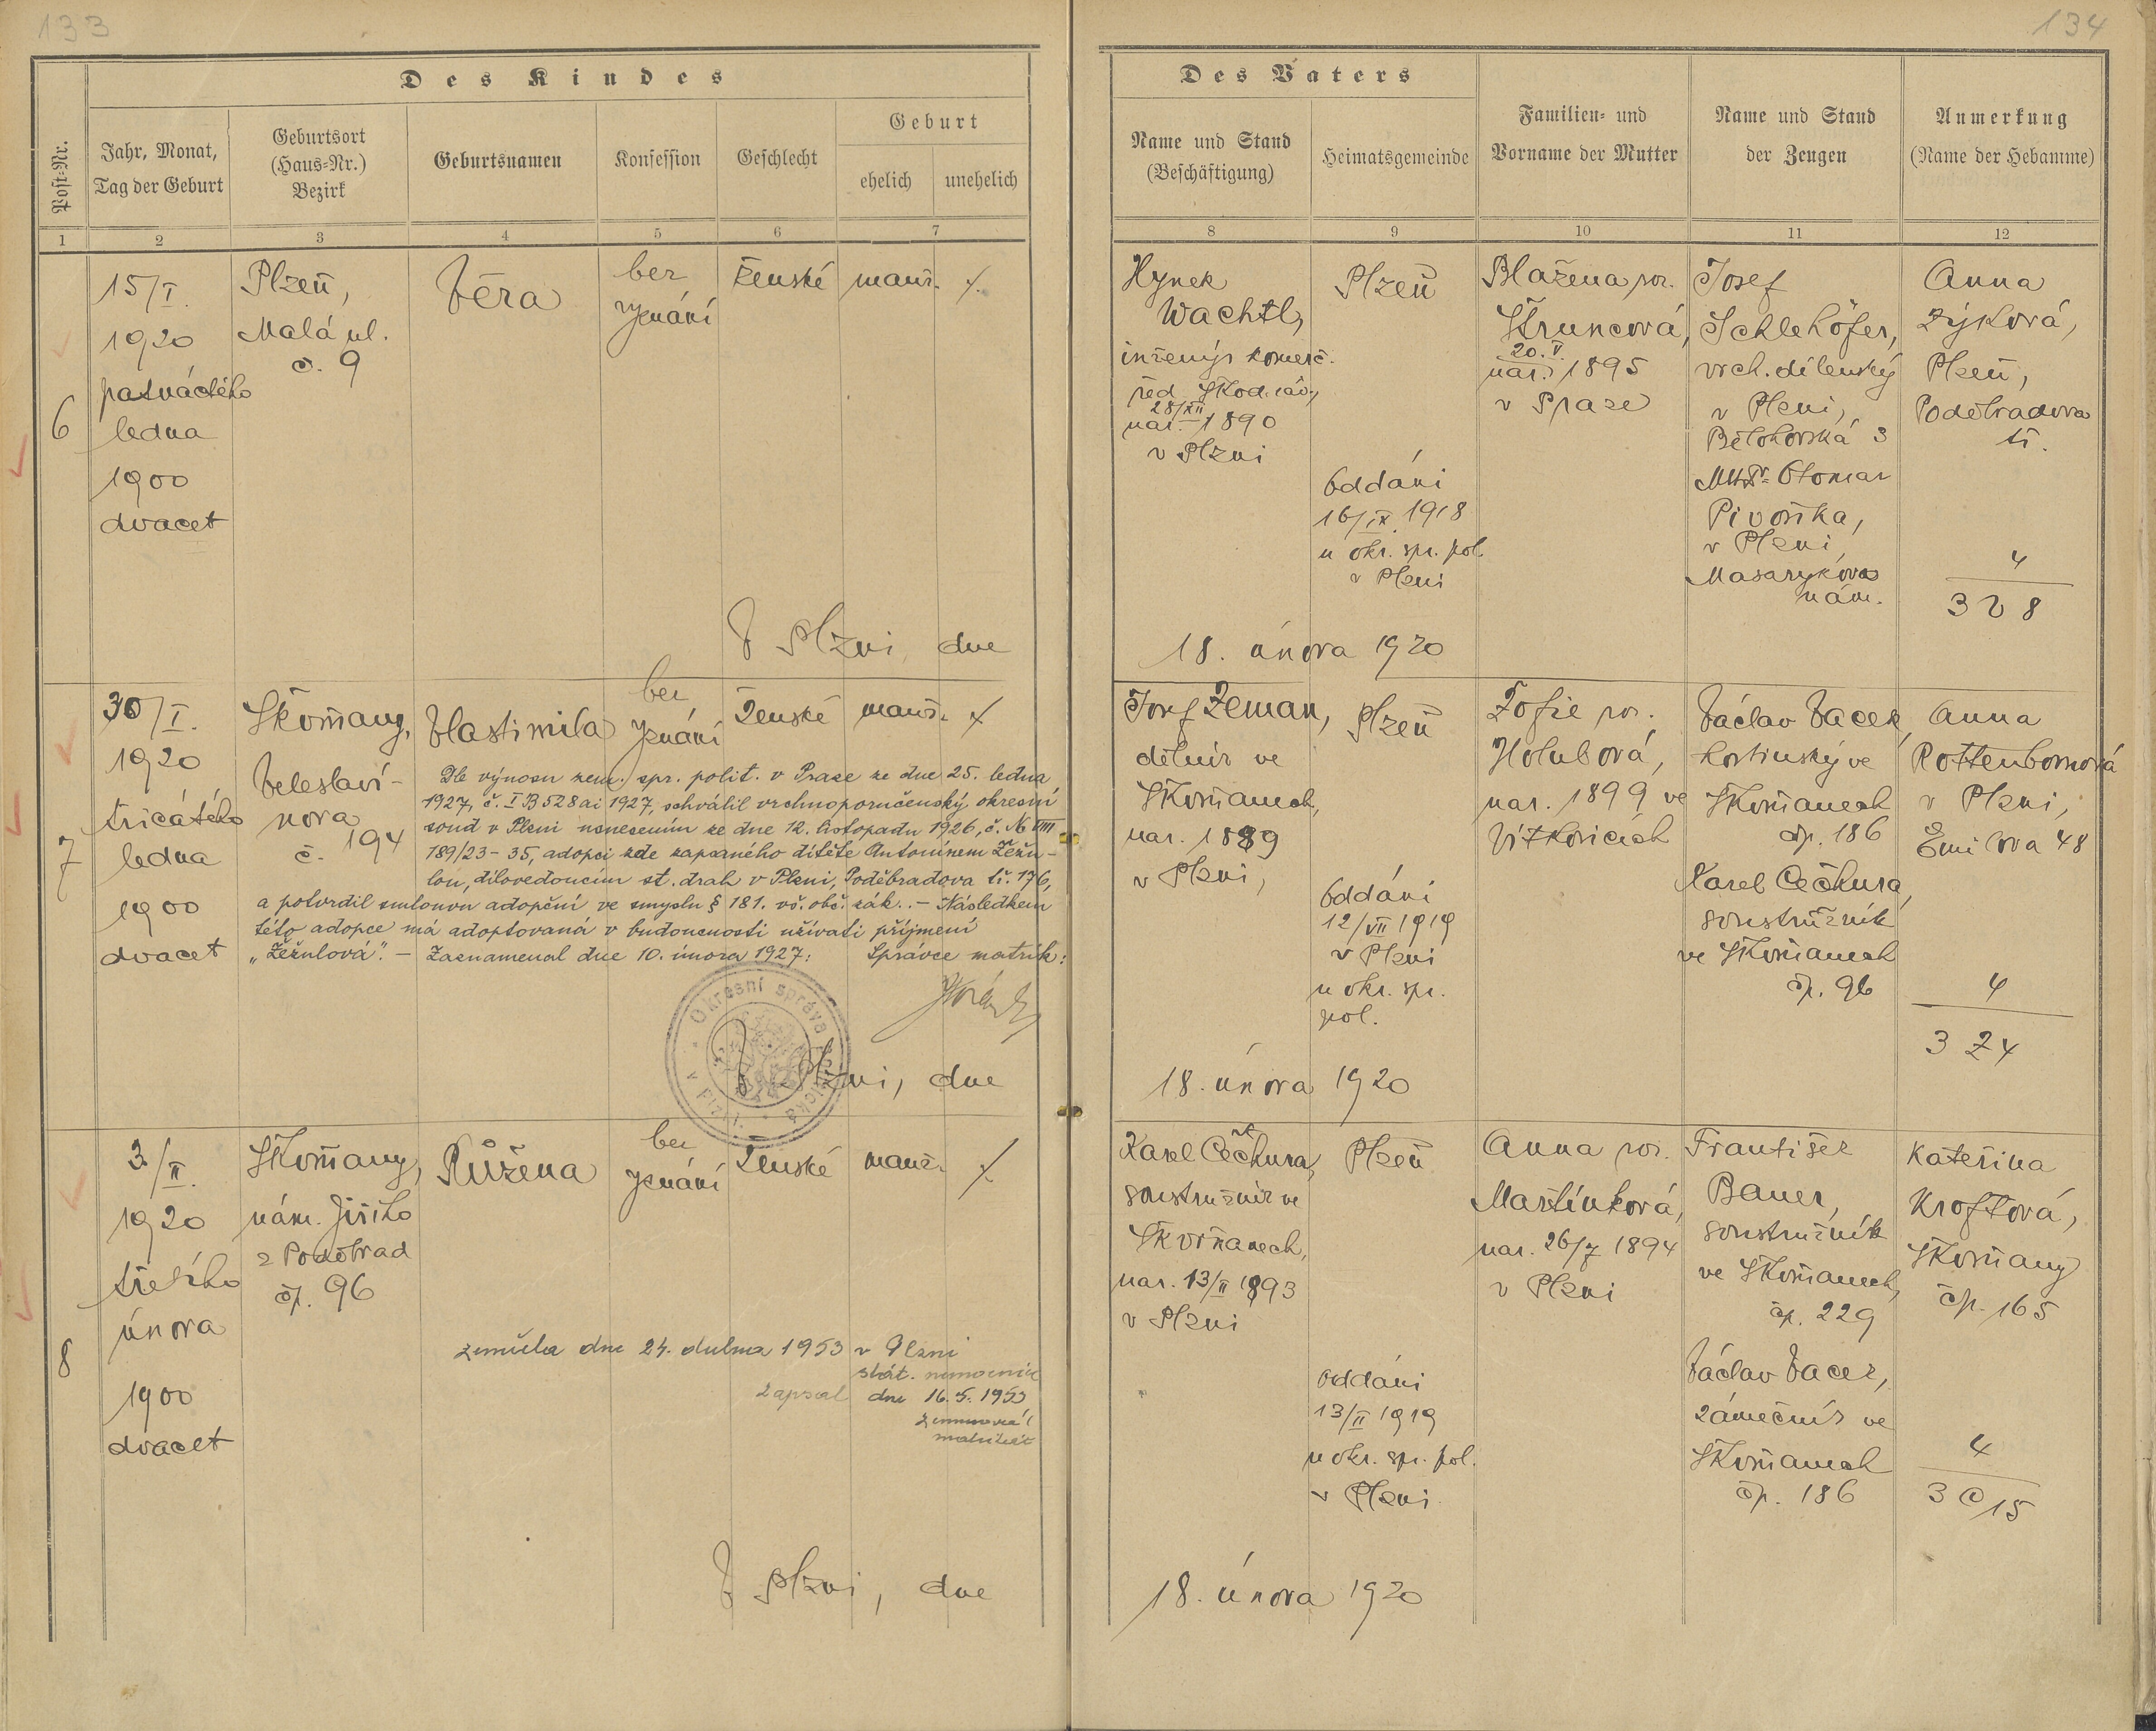 133
134
Des Kindes
Post-Nr.
Jahr, Monat,
Tag der Geburt
Geburtsort
(Haus-Nr.)
Bezirk
Geburtsnamen
Konfession
Geschlecht
Geburt
ehelich
unehelich
1 2 3 4 5 6 7
Des Vaters
Name und Stand
(Beschäftigung)
Heimatsgemeinde
Familien- und
Vorname der Mutter
Name und Stand
der Zeugen
Anmerkung
(Name der Hebamme)
8 9 10 11 12
6
15/I.
1920
patnáctého
ledna
1900
dvacet
Plzeň,
Malá ul.
č. 9
Věra
bez
vyznání
ženské
manž.
V Plzni, dne
Hynek
Wachtl,
inženýr komerč.
řed. Škod. záv.,
28/XII
nar. 1890
v Plzni
Plzeň
Oddáni
16/IX. 1918
u okr. spr. pol.
v Plzni
Blažena roz.
Štruncová,
20. V.
nar. 1895
v Praze
Josef
Schlehöfer,
vrch. dílenský
v Plzni,
Bělohorská 3
Otomar
Pivoňka,
v Plzni,
Masarykovo
nám.
Anna
Zýková,
Plzeň,
Poděbradova
tř.
4
328
18. února 1920
7
30/I.
1920
třicátého
ledna
1900
dvacet
Škvrňany,
Veleslaví-
nova
č. 194
Vlastimila
bez
vyznání
ženské
manž.
Dle výnosu zem. spr. polit. v Praze ze dne 25. ledna
1927, č. I B 528 ai 1927, schválil vrchnoporučenský okresní
soud v Plzni usnesením ze dne 12. listopadu 1926, č. N VIII
189/23-35, adopci zde zapsaného dítěte Antonínem Žežu-
lou, dílovedoucím st. drah v Plzni, Poděbradova tř. 176,
a potvrdil smlouvu adopční ve smyslu § 181. vš. obč. zák. - Následkem
této adopce má adoptovaná v budoucnosti užívati příjmení
„Žežulová". - Zaznamenal dne 10. února 1927: Správce matrik:
Okresní správa politická v Plzni
V Plzni, dne
Josef Zeman,
dělník ve
Škvrňanech,
nar. 1889
v Plzni,
Plzeň
Oddáni
12/VII 1919
v Plzni
u okr. spr.
pol.
Žofie roz.
Holubová,
nar. 1899 ve
Vítkovicích
Václav Vacek,
hostinský ve
Škvrňanech
čp. 186
Karel Čečkura,
soustružník
ve Škvrňanech
čp. 96
Anna
Rottenbornová
v Plzni,
48
4
324
18. února 1920
8
3/II.
1920
třetího
února
1900
dvacet
Škvrňany,
nám. Jiřího
z Poděbrad
čp. 96
Růžena
bez
vyznání
ženské
manž.
zemřela dne 24. dubna 1953 v Plzni
stát. nemocnice
zapsal dne 16.5.1953
V Plzni, dne
Karel Čečkura,
soustružník ve
Škvrňanech,
nar. 13/II 1893
v Plzni
Plzeň
oddáni
13/II 1919
u okr. spr. pol.
v Plzni
Anna roz.
Martínková,
nar. 26/7 1894
v Plzni
František
Bauer,
soustružník
ve Škvrňanech,
čp. 229
Václav Vacek,
zámečník ve
Škvrňanech
čp. 186
Kateřina
Kroftová,
Škvrňany
čp. 165
4
18. února 1920